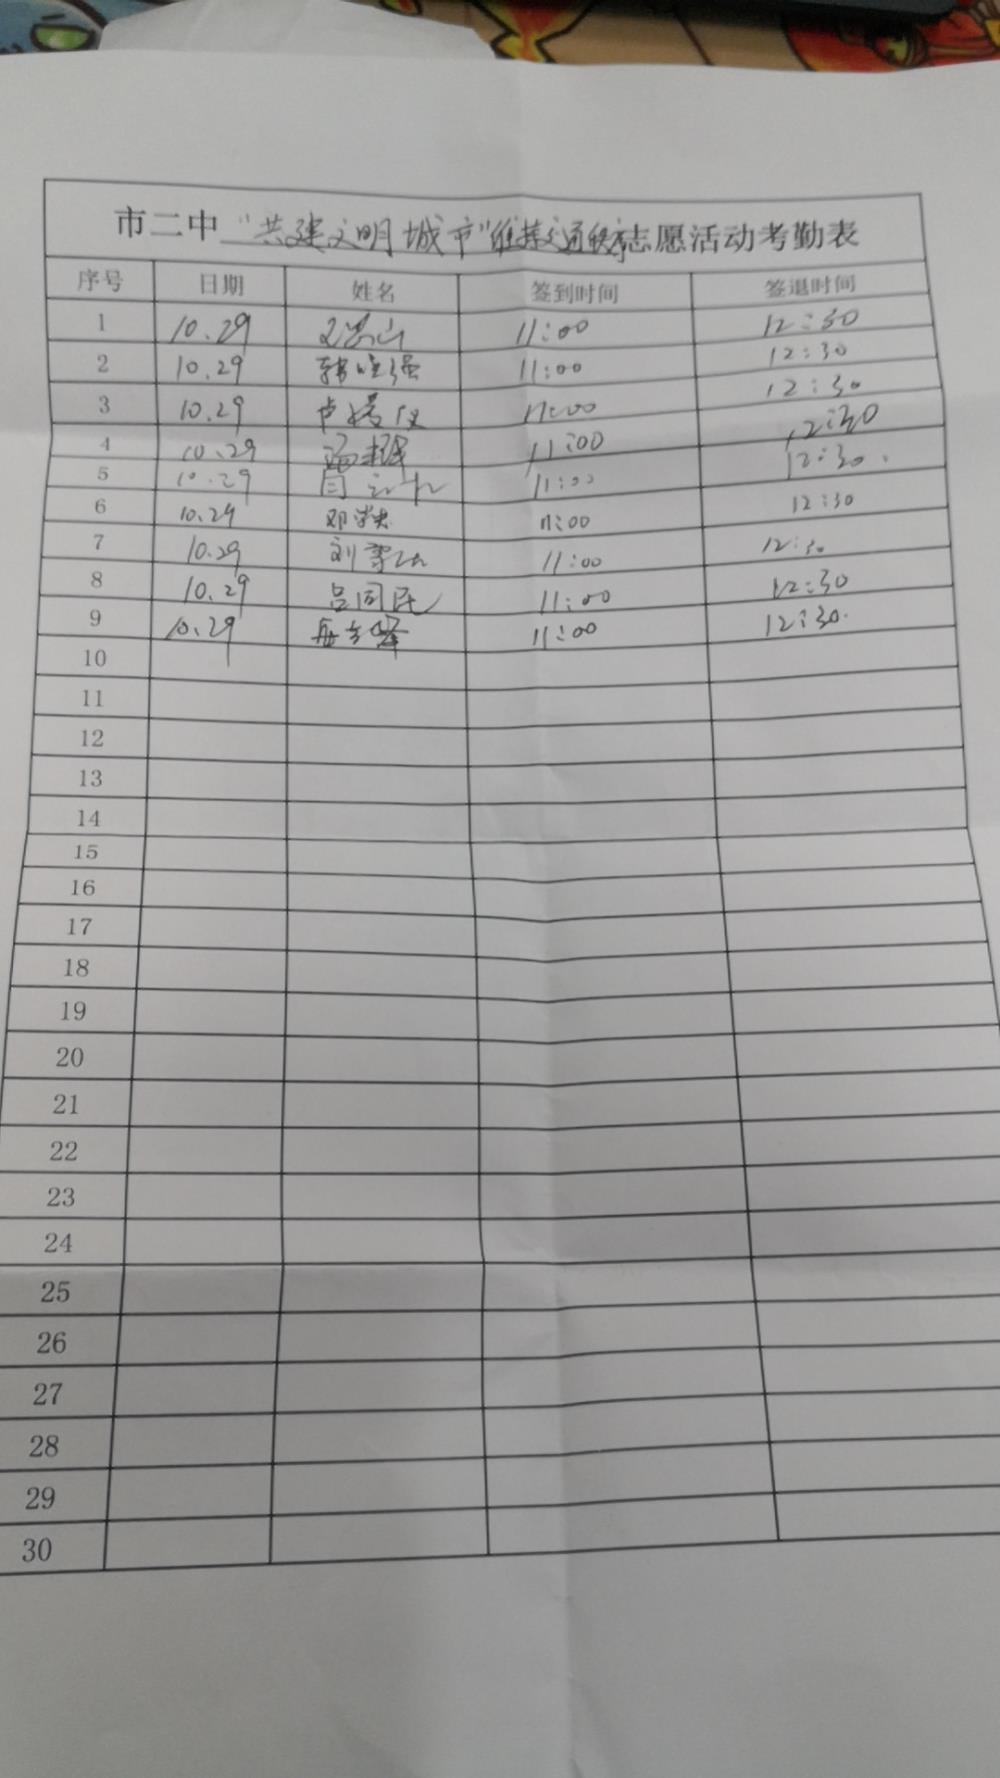 市二中"共建文明城市"维持交通秩序志愿活动考勤表
序号 日期 姓名 签到时间 签退时间
1 10.29 11:00 12:30
2 10.29 韩 强 11:00 12:30
3 10.29 卢 11:00 12:30
4 10.29 11:00 12:30
5 10.29 闫 11:00 12:30.
6 10.29 邓 11:00 12:30
7 10.29 刘 11:00 12:30
8 10.29 吕同民 11:00 12:30
9 10.29 11:00 12:30.
10
11
12
13
14
15
16
17
18
19
20
21
22
23
24
25
26
27
28
29
30